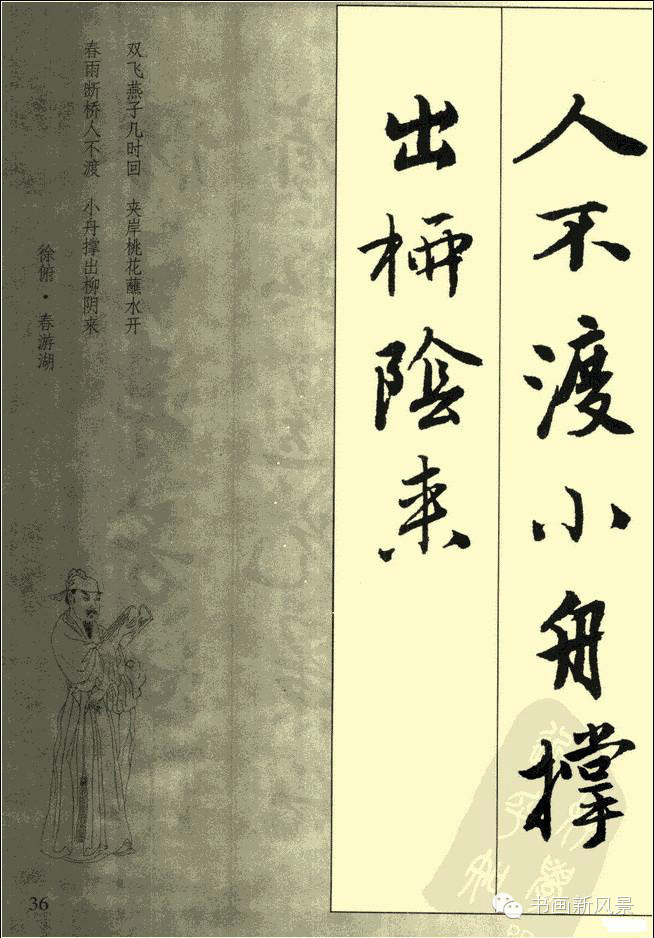 人不渡小舟撑
出柳陰来
双飞燕子几时回 夹岸桃花蘸水开
春雨断桥人不渡 小舟撑出柳阴来
徐俯·春游湖
36
书画新风景